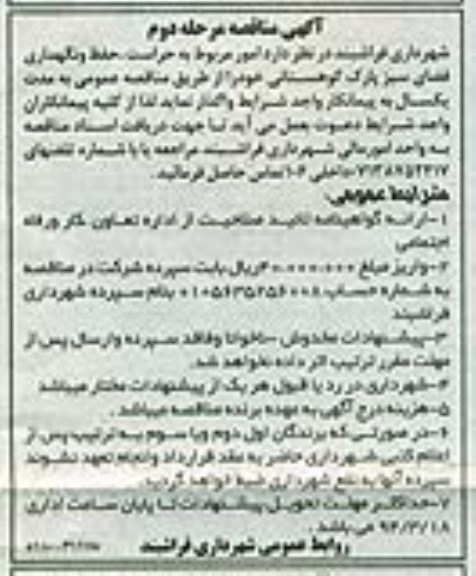 آگهی مناقصه مرحله دوم
شهرداری فراشبند در نظر دارد امور مربوط به حراست، حفظ ونگهداری
فضای سبز پارک کوهستانی خودرا از طریق مناقصه عمومی به مدت
یکسال به پیمانکار واجد شرایط واگذار نماید لذا از کلیه پیمانکاران
واجد شرایط دعوت بعمل می آید تا جهت دریافت اسناد مناقصه
به واحد امورمالی شهرداری فراشبند مراجعه یا با شماره تلفنهای
داخلی ۱۰۶ تماس حاصل فرمائید.
شرایط عمومی:
۱-ارائه گواهینامه تائید صلاحیت از اداره تعاون ،کار ورفاه
اجتماعی
۲-واریز مبلغ ۴۰،۰۰۰،۰۰۰ریال بابت سپرده شرکت در مناقصه
به شماره حساب بنام سپرده شهرداری
فراشبند
۳-پیشنهادات مخدوش -ناخوانا وفاقد سپرده وارسال پس از
مهلت مقرر ترتیب اثر داده نخواهد شد.
۴-شهرداری در رد یا قبول هر یک از پیشنهادات مختار میباشد
۵-هزینه درج آگهی به عهده برنده مناقصه میباشد .
۶-در صورتی که برندگان اول دوم ویا سوم به ترتیب پس از
اعلام کتبی شهرداری حاضر به عقد قرارداد وانجام تعهد نشوند
سپرده آنها به نفع شهرداری ضبط خواهد گردید.
۷-حداکثر مهلت تحویل پیشنهادات تا پایان ساعت اداری
۹۴/۳/۱۸ می باشد .
روابط عمومی شهرداری فراشبند